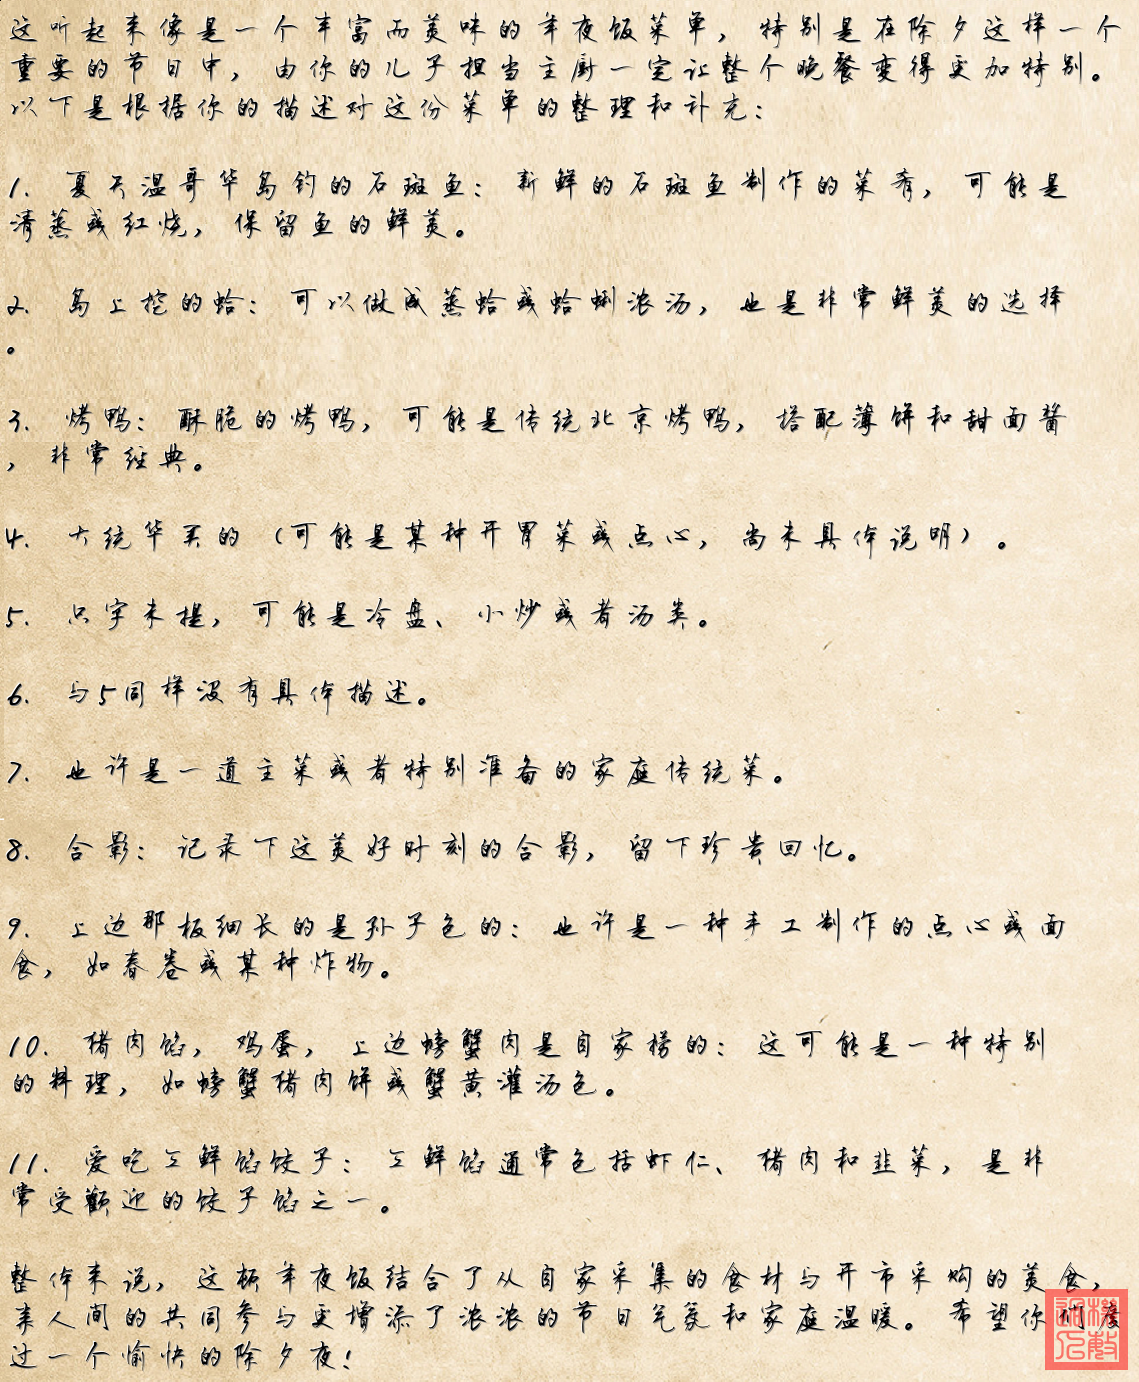 这听起来像是一个丰富而美味的年夜饭菜单，特别是在除夕这样一个
重要的节日中，由你的儿子担当主厨一定让整个晚餐变得更加特别。
以下是根据你的描述对这份菜单的整理和补充：
1. 夏天温哥华岛钓的石斑鱼：新鲜的石斑鱼制作的菜肴，可能是
清蒸或红烧，保留鱼的鲜美。
2. 岛上挖的蛤：可以做成蒸蛤或蛤蜊浓汤，也是非常鲜美的选择
。
3. 烤鸭：酥脆的烤鸭，可能是传统北京烤鸭，搭配薄饼和甜面酱
，非常经典。
4. 大统华买的（可能是某种开胃菜或点心，尚未具体说明）。
5. 只字未提，可能是冷盘、小炒或者汤类。
6. 与5同样没有具体描述。
7. 也许是一道主菜或者特别准备的家庭传统菜。
8. 合影：记录下这美好时刻的合影，留下珍贵回忆。
9. 上边那板细长的是孙子包的：也许是一种手工制作的点心或面
食，如春卷或某种炸物。
10. 猪肉馅，鸡蛋，上边螃蟹肉是自家捞的：这可能是一种特别
的料理，如螃蟹猪肉饼或蟹黄灌汤包。
11. 爱吃三鲜馅饺子：三鲜馅通常包括虾仁、猪肉和韭菜，是非
常受欢迎的饺子馅之一。
整体来说，这顿年夜饭结合了从自家采集的食材与开市采购的美食，
家人间的共同参与更增添了浓浓的节日气氛和家庭温暖。希望你们度
过一个愉快的除夕夜！